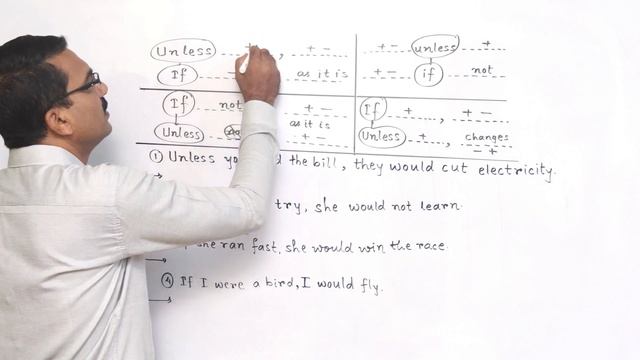 Unless ... + ..., + -
If ... - ... as it is
+ - unless +
+ - if not
If not + -
Unless as it is + -
If + ...., + -
Unless +, changes - +
① Unless the bill, they would cut electricity.
try, she would not learn.
she ran fast, she would win the race
④ If I were a bird, I would fly.